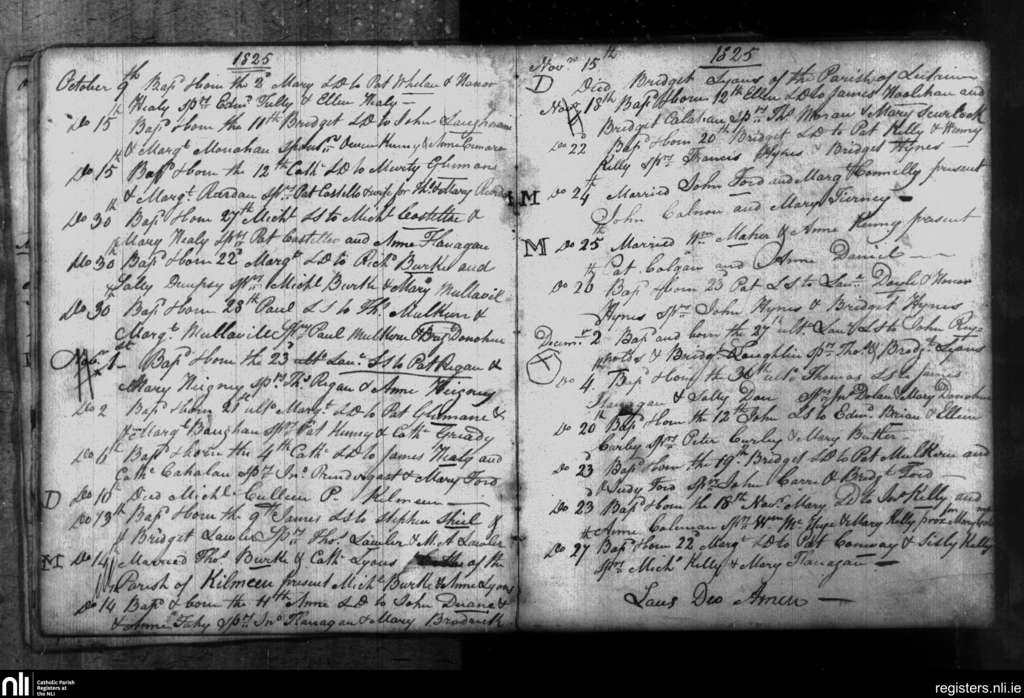 1825
October 9th Bap d & born the 2d Mary LD to Pat Whelan & Honor
Healy Sprs Edmd Kelly & Ellen Healy
Do 15th Bapd & born the 11th Bridget LD to John Loughnane
& Margt Monahan Sponsrs Owen Kenny & Anne
Do 15th Bapd & born the 12th Cath LD to Murty Glennane
& Margt Reardan Sprs Pat Costello & wife for Ths & Mary
Do 30 Bapd & born 27th Michl LS to Michl Costelloe &
Mary Healy Sprs Pat Costelloe and Anne Flanagan
Do 30th Bapd & born 22d Margt LD to Richd Burke and
Sally Dempsy Sprs Michl Burke & Mary Mullavil
Do 30 Bapd & born 23th Paul LS to Ths Mulkern &
Margt Mullaville Sprs Paul Mulkern & Brig Donohue
Novr 1st Bapd & born the 23d Laur LS to Pat Regan &
Mary Heigney Sprs Ths Regan & Anne Heigney
Do 2 Bapd & born 21st ulto Margt LD to Pat Glennane &
Margt Baughan Sprs Pat Henny & Cath Gready
Do 6th Bapd & born the 4th Cath LD to James Healy and
Cath Cahalan Sprs Jno Prendergast & Mary Ford
D Do 10th Died Michl Culleen P. Kilmeen
Do 13th Bapd & born the 9th James LS to Stephen Shiel &
Bridget Lawler Sprs Ths Lawler & M.A. Lawler
M Do 14 Married Ths Burke & Cath Lyons of the
Parish of Kilmeen present Michl Burke & Anne Lyons
Do 14 Bapd & born the 11th Anne LD to John Duane &
Anne Fahy Sprs Jno Flanagan & Mary Broderick
1825
Novr 15th
D Died Bridget Lyons of the Parish of Leitrim
Novr 18th Bapd & born 12th Ellen LD to James Hoolihan and
Bridget Calahan Sprs Ths Moran & Mary Scurlock
Do 22 Bapd & born 20th Bridget LD to Pat Kelly & Henry
Kelly Sprs Francis Hynes & Bridget Hynes
M Do 24th Married John Ford and Marg Connelly present
John Calnon and Mary Tierney
M Do 25th Married Wm Maher & Anne Kenny present
Pat Colgan and Anne Daniel
Do 26th Bapd & born 23 Pat LS to Laur Doyle & Honor
Hynes Sprs John Hynes & Bridget Hynes
Decemr 2 Bapd and born the 27 ult Laur LS to John Rey-
nolds & Bridgt Loughlin Sprs Thos & Bridgt Lyons
Do 4 Bapd & born the 30th ulto Thomas LS to James
Flanagan & Sally Dou Sprs Jno Dolan & Mary Donohue
Do 20th Bapd & born the 12th John LS to Edmd Brian & Ellen
Curley Sprs Peter Curley & Mary Butler
Do 23 Bapd & born the 19th Bridget LD to Pat Mulkern and
Judy Ford Sprs John Carr & Bridgt Ford
Do 23 Bapd & born the 18th Novr Mary D to Jno Kelly and
Anne Coleman Sprs Wm & Mary Kelly
Do 27th Bapd & born 22d Margt LD to Pat Conway & Sibby Kelly
Sprs Michl Kelly & Mary Flanagan
Laus Deo Amen
nli
Catholic Parish
Registers at
the NLI
registers.nli.ie